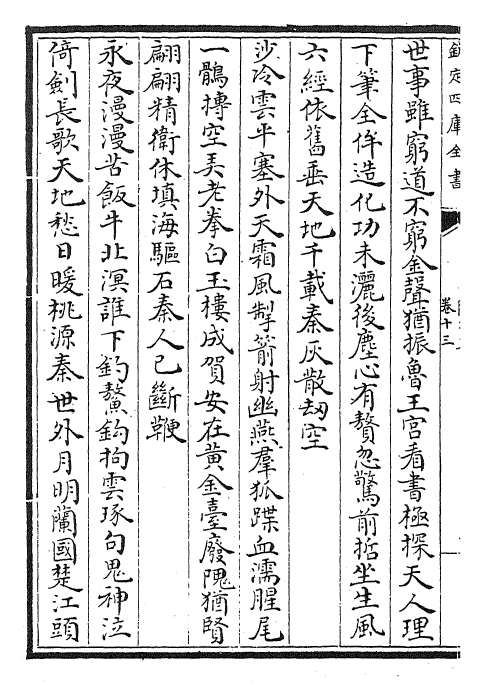 欽定四庫全書
卷十三
世事雖窮道不窮金聲猶振魯王宮看書極探天人理
下筆全侔造化功未灑後塵心有贅忽驚前㧞坐生風
六經依舊垂天地千載秦灰散刼空
沙冷雲平塞外天霜風掣箭射幽燕羣狐蹀血濡腥尾
一鶻摶空弄老拳白玉樓成賀安在黃金臺廢隗猶賢
翩翩精衛休填海驅石秦人已斷鞭
永夜漫漫苦飯牛北溟誰下釣鰲鈎拘雲琢句鬼神泣
倚劍長歌天地愁日暖桃源秦世外月明蘭國楚江頭